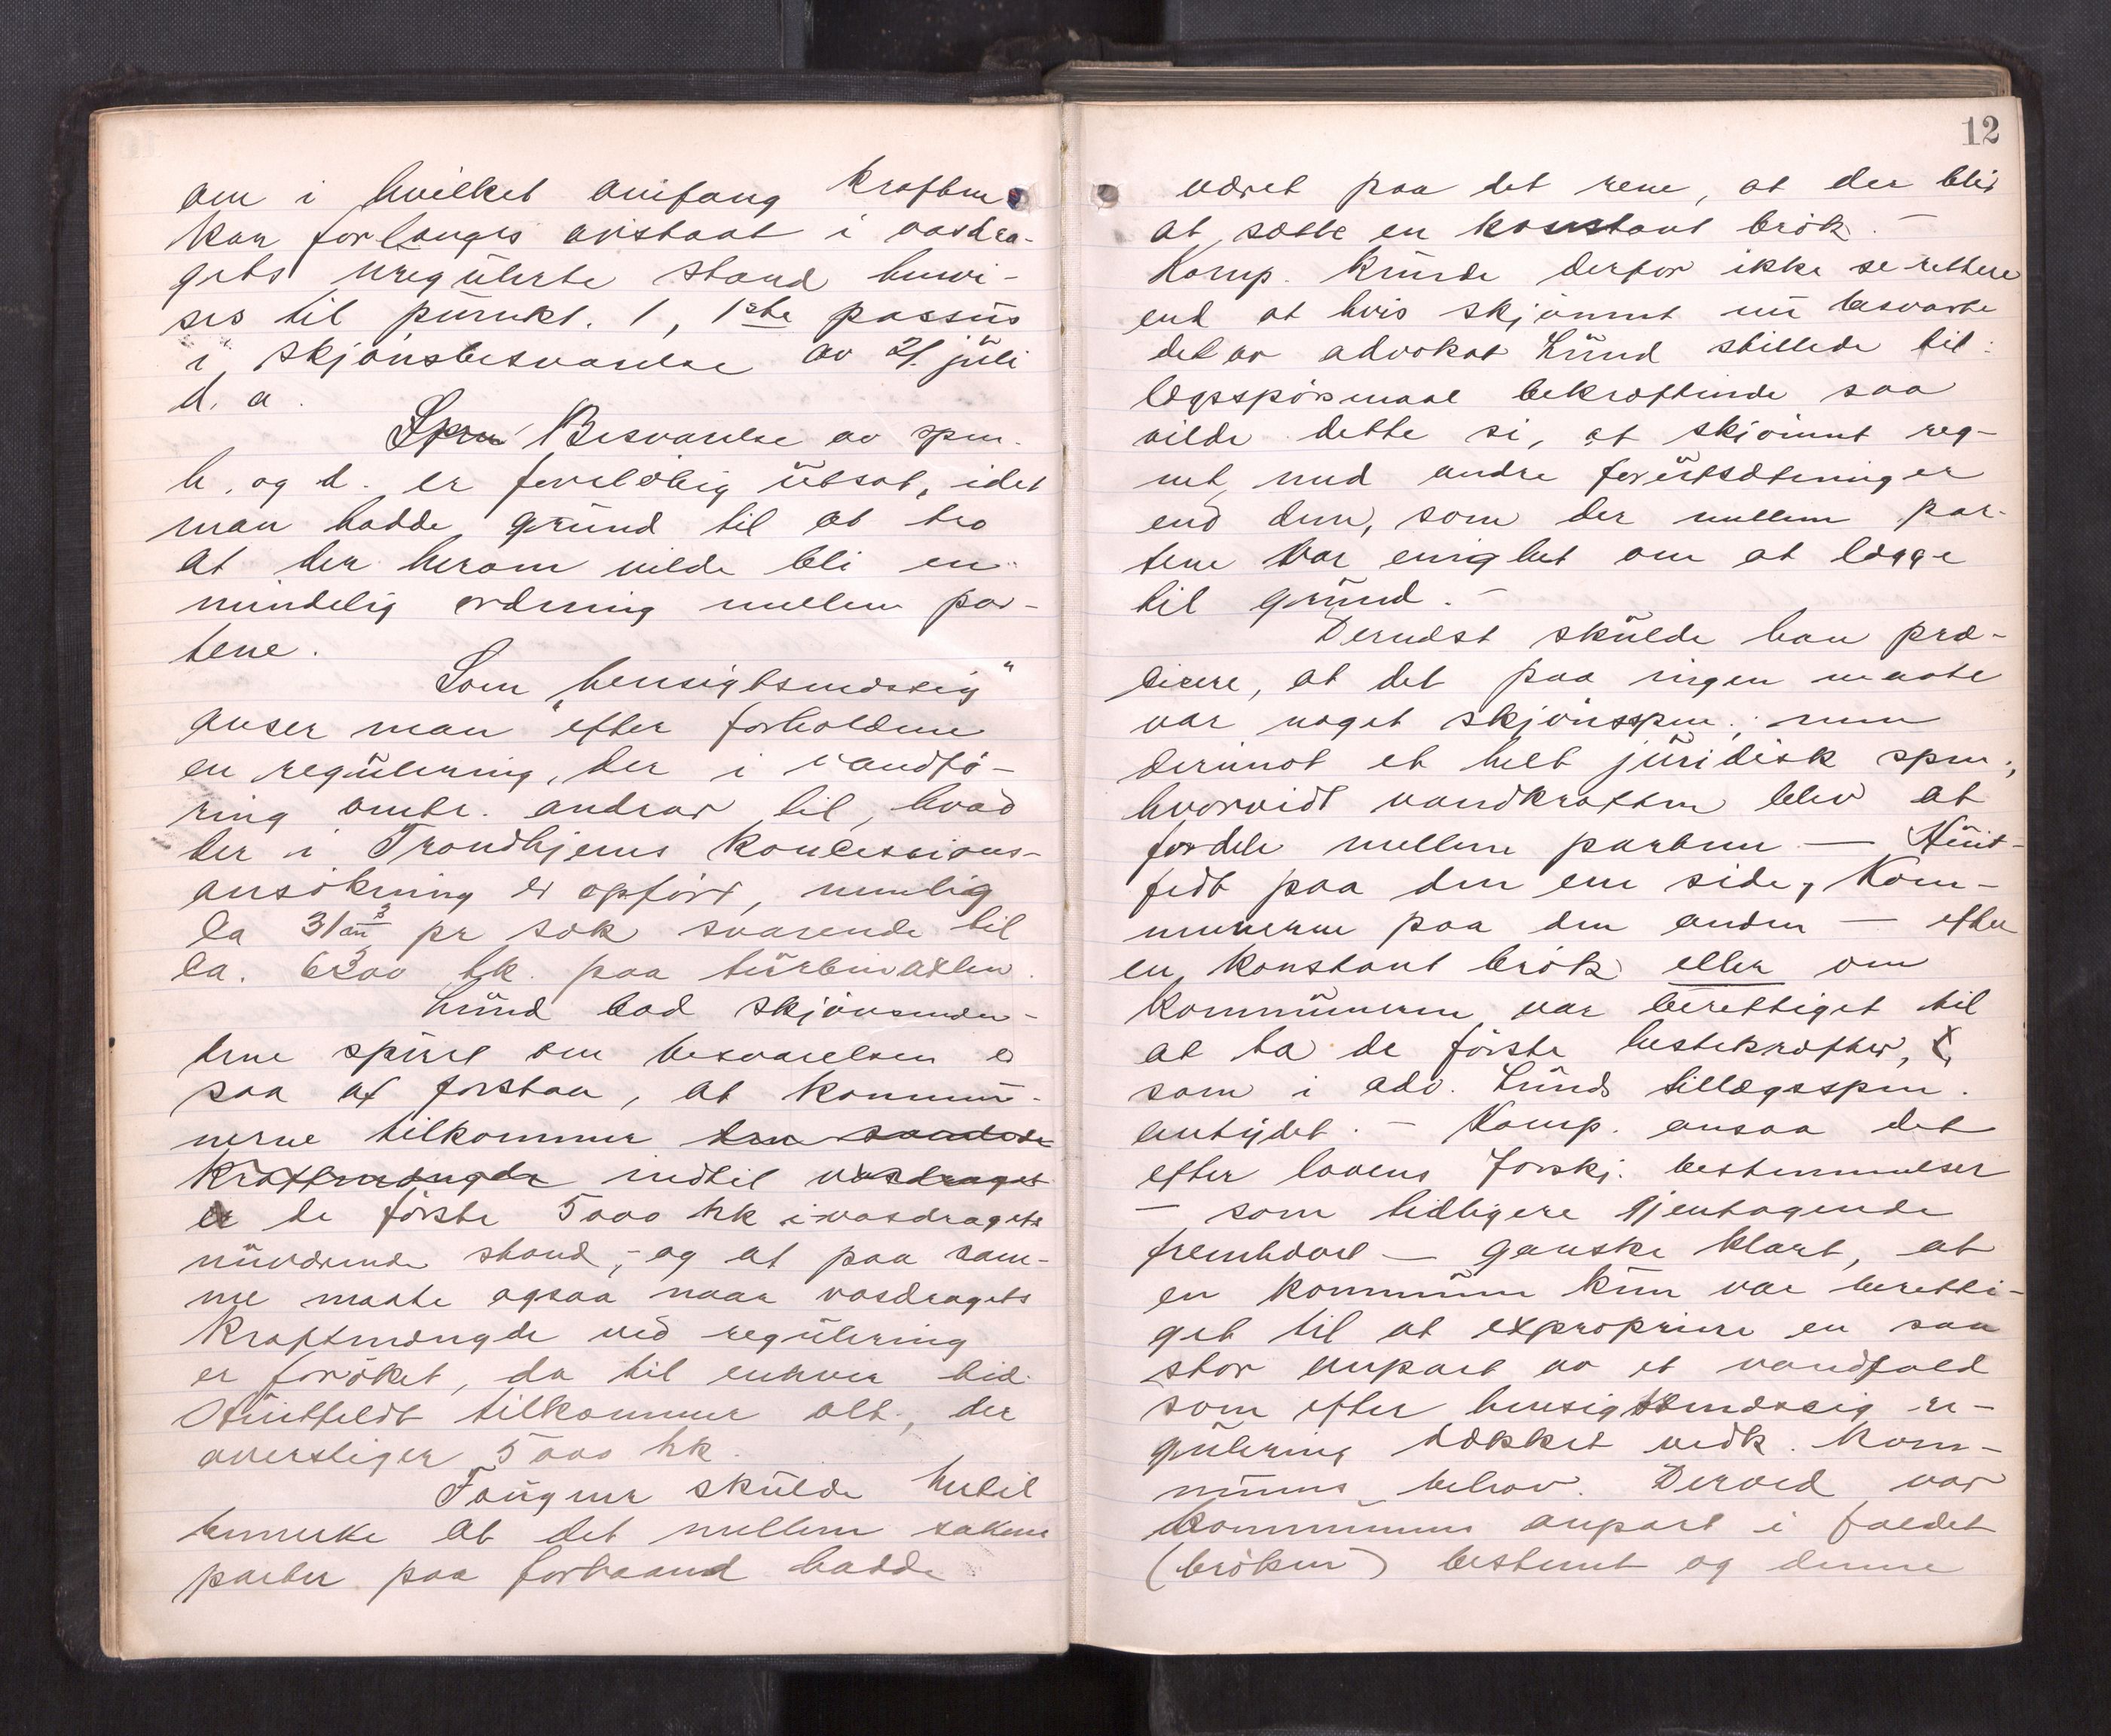 om i hvilket omfang kraften
kan forlanges avstaat i vasdra-
gets uregulerte stand henvi-
ses til punkt. 1, 1ste passus
i skjønsbesvarelse av 21. juli
d. a.
Spm Besvarelse av spm.
b. og d. er foreløbig utsat, idet
man hadde grund til at tro
at der herom vilde bli en
mindelig ordning mellem par-
tene.
Som "hensigtsmæssig"
anser man efter forholdene
en regulering, der i vandfø-
ring omtr. andrar til, hvad
der i Trondhjems koncessions-
ansøkning er opført, nemlig
ca 31 m3 pr sek svarende til
ca. 6300 hk. paa turbinaxlen.
Lund bad skjønsmæn-
dene spurt om besvarelsen er
saa at forstaa, at kommu-
nerne tilkommer den saadede
kraftmængde indtil vasdraget
er de første 5000 hk i vasdragets
nuværende stand, - og at paa sam-
me maate ogsaa naar vasdragets
kraftmængde ved regulering
er forøket, da til enhver tid
Huitfeldt tilkommer alt, der
overstiger 5000 hk.
Fougner skulde hertil
bemerke at det mellem sakens
parter paa forhaand hadde
12
været paa det rene, at der blir
at sætte en konstant brøk. -
Komp. kunde derfor ikke se rettere
end at hvis skjønnet nu besvarte
det av advokat Lund stillede til-
lægsspørsmaal bekræftende saa
vilde dette si, at skjønnet reg-
net med andre forutsætninger
end dem, som der mellem par-
tene var enighet om at lægge
til grund. -
Dernæst skulde han præ-
cisere, at det paa ingen maate
var noget skjønsspm.; men
derimot et helt juridisk spm.,
hvorvidt vandkraften blev at
fordele mellem parterne - Huit-
feldt paa den ene side, Kom-
munerne paa den anden - efter
en konstant brøk eller om
kommunerne var berettiget til
at ta de første hestekræfter,
som i adv. Lunds tillægsspm.
antydet. - Komp. ansaa det
efter lovens forskj. bestemmelser
- som tidligere gjentagende
fremhævet - ganske klart, at
en kommune kun var beretti-
get til at expropriere en saa
stor anpart av et vandfald
som efter hensigtsmæssig re-
gulering dækket vedk. kom-
munes behov. Derved var
kommunens anpart i faldet
(brøken) bestemt og denne